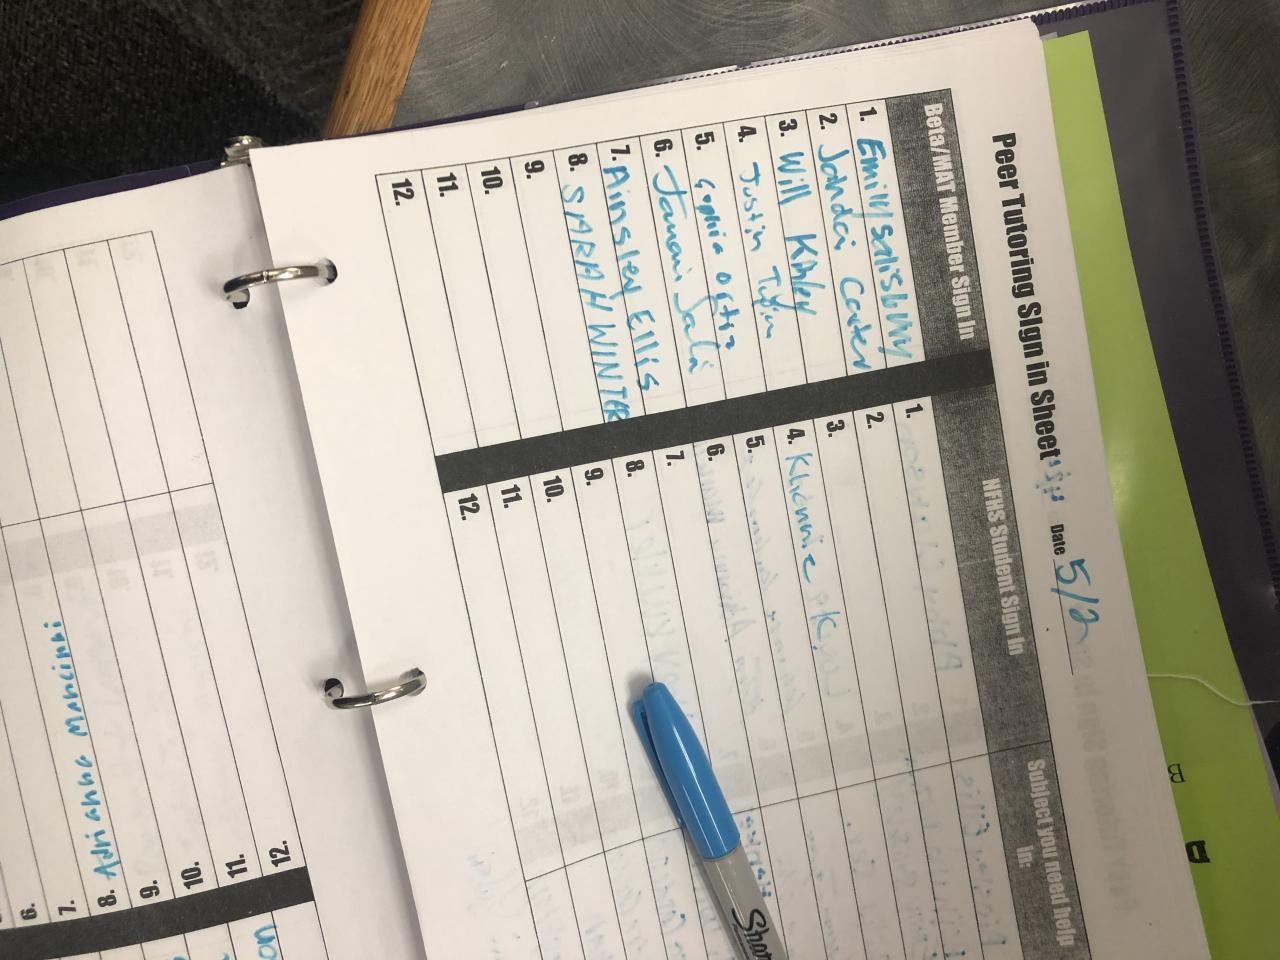 Peer Tutoring Sign in Sheet Date 5/2
Beta/MAT Member Sign In
1. Emily Salisbury
2. Jahdai Carter
3. Will Kinley
4. Justin
5. Sophia Ortiz
6. Jamani Sali
7. Ainsley Ellis
8. SARAH WINTER
9.
10.
11.
12.
NFHS Student Sign In
1.
2.
3.
4. Khannie
5.
6.
7.
8.
9.
10.
11.
12.
Subject you need help in:
6.
7.
8. Adrianna Mancinni
9.
10.
11.
12.
Shar